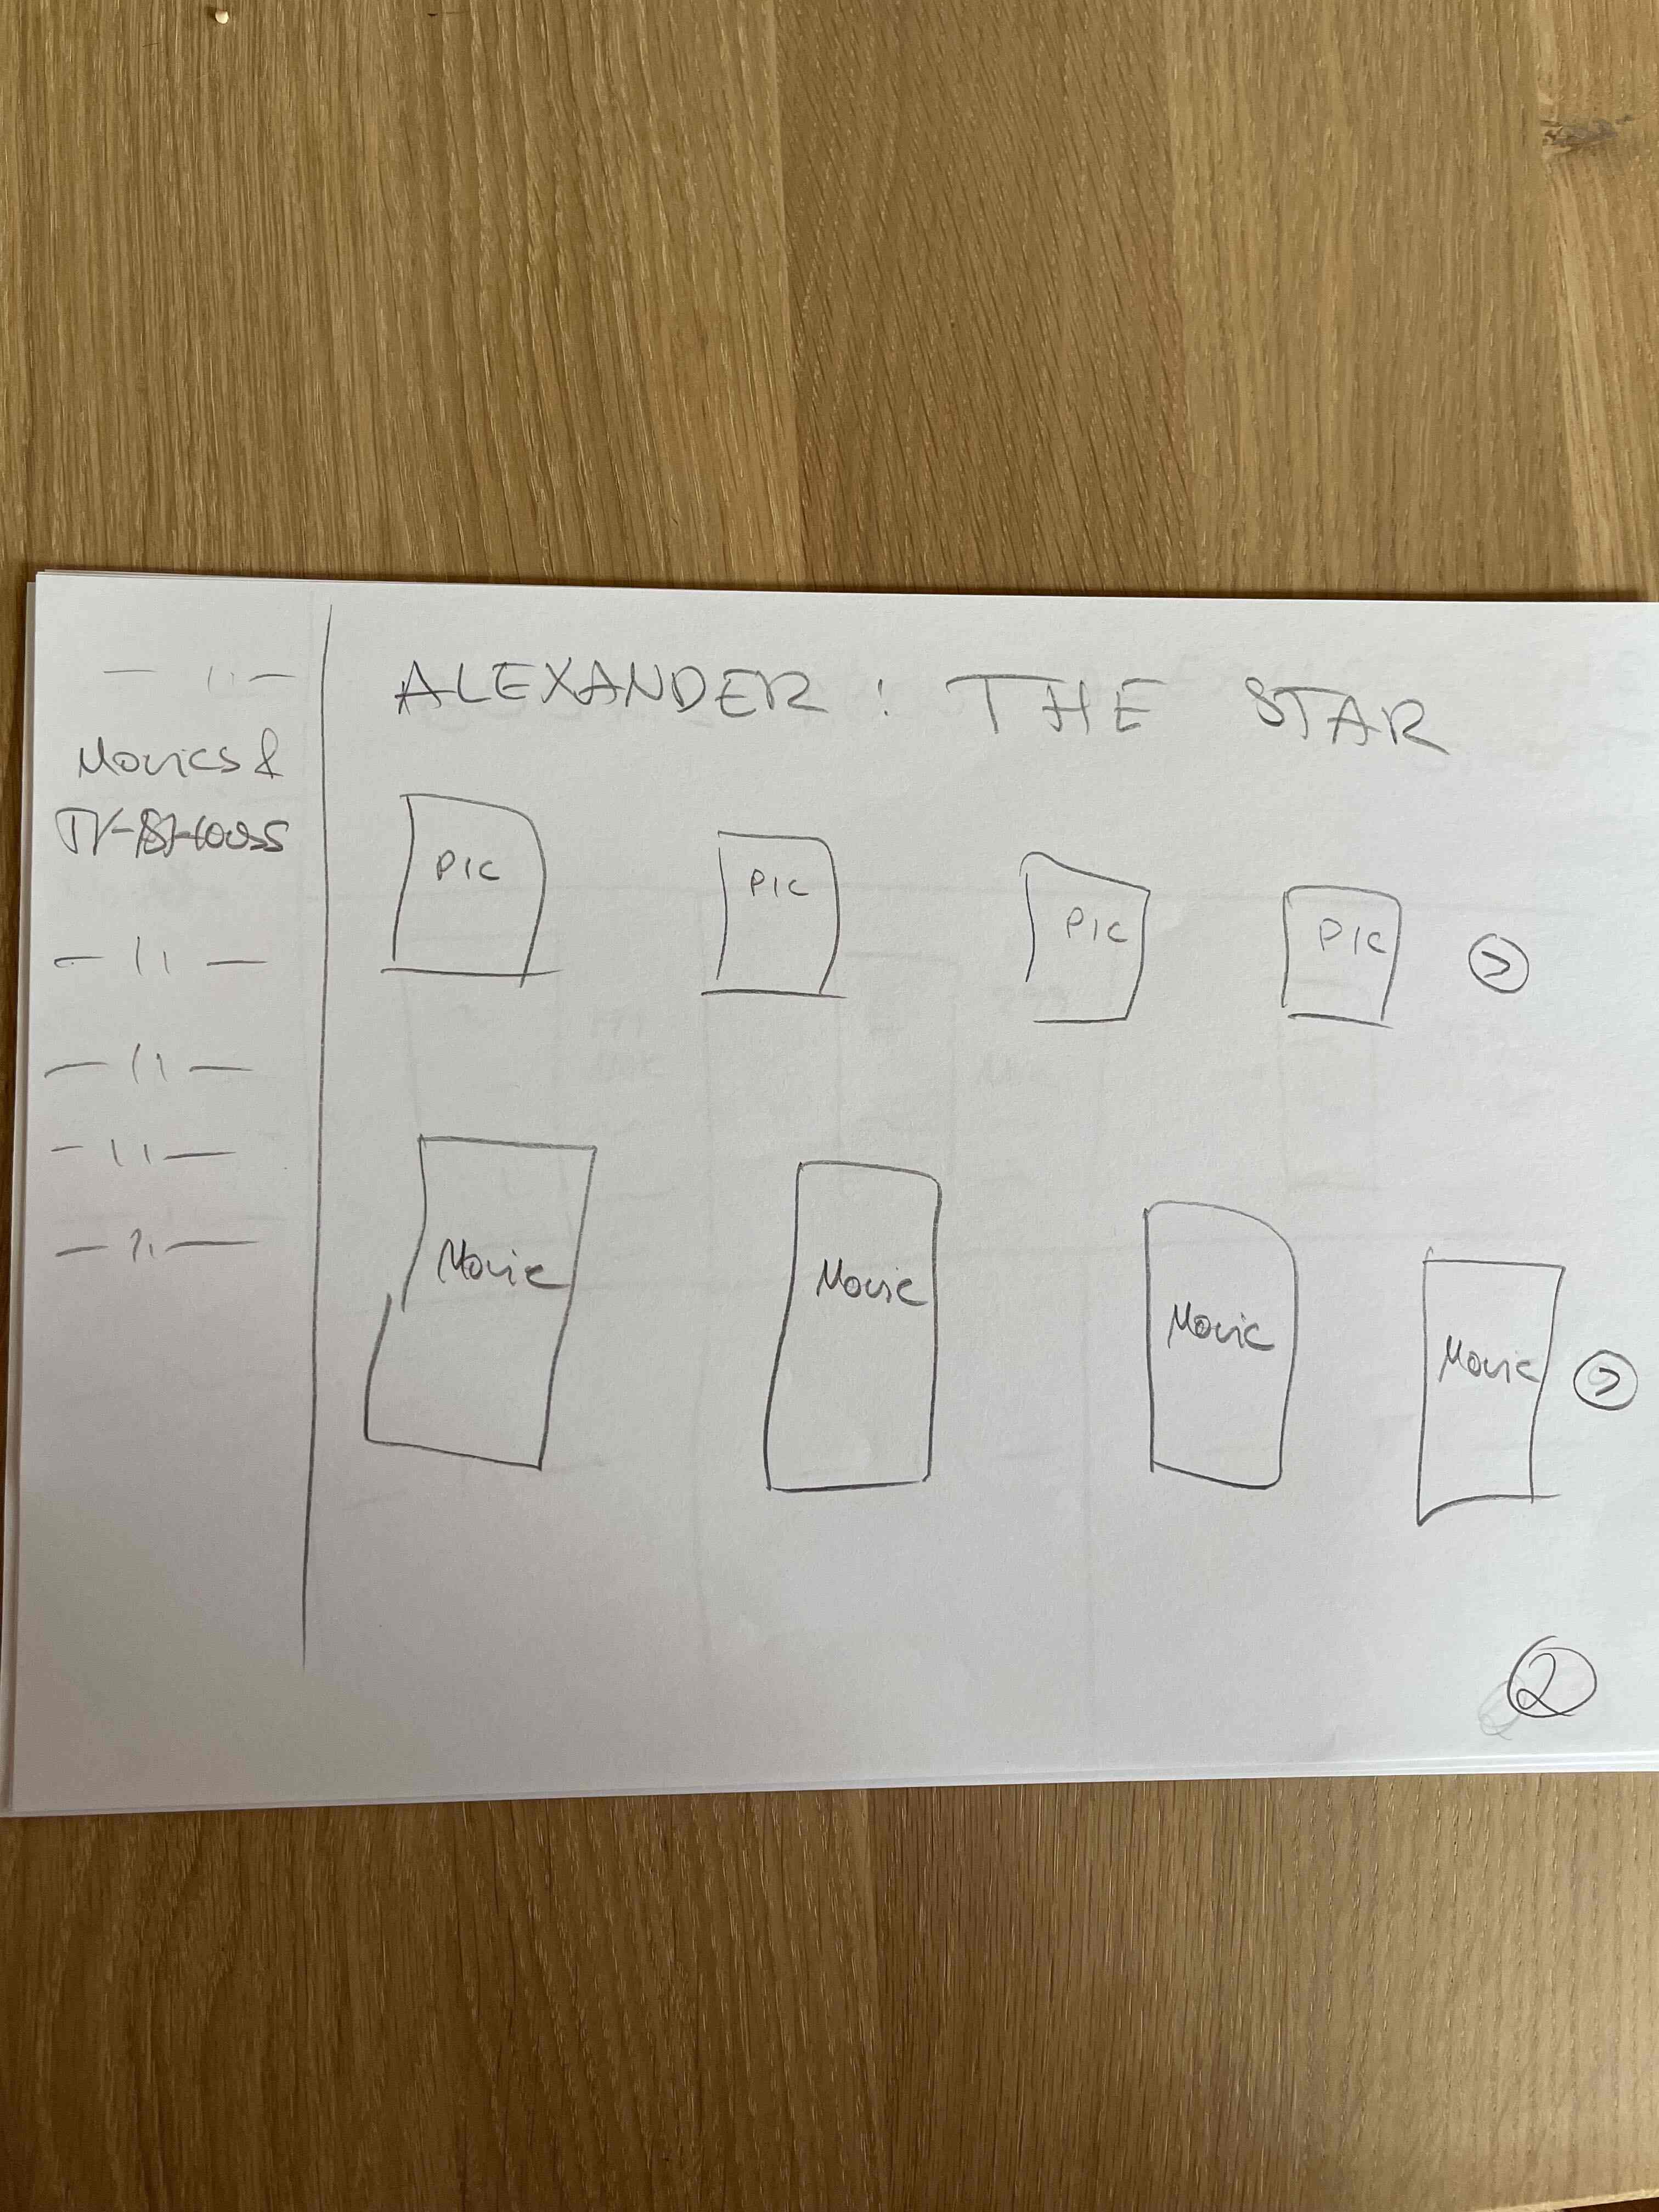 — 11 —
Movies &
TV-SHOWS
— 11 —
— 11 —
— 11 —
— 11 —
ALEXANDER : THE STAR
PIC PIC PIC PIC >
Movie Movie Movie Movie >
2